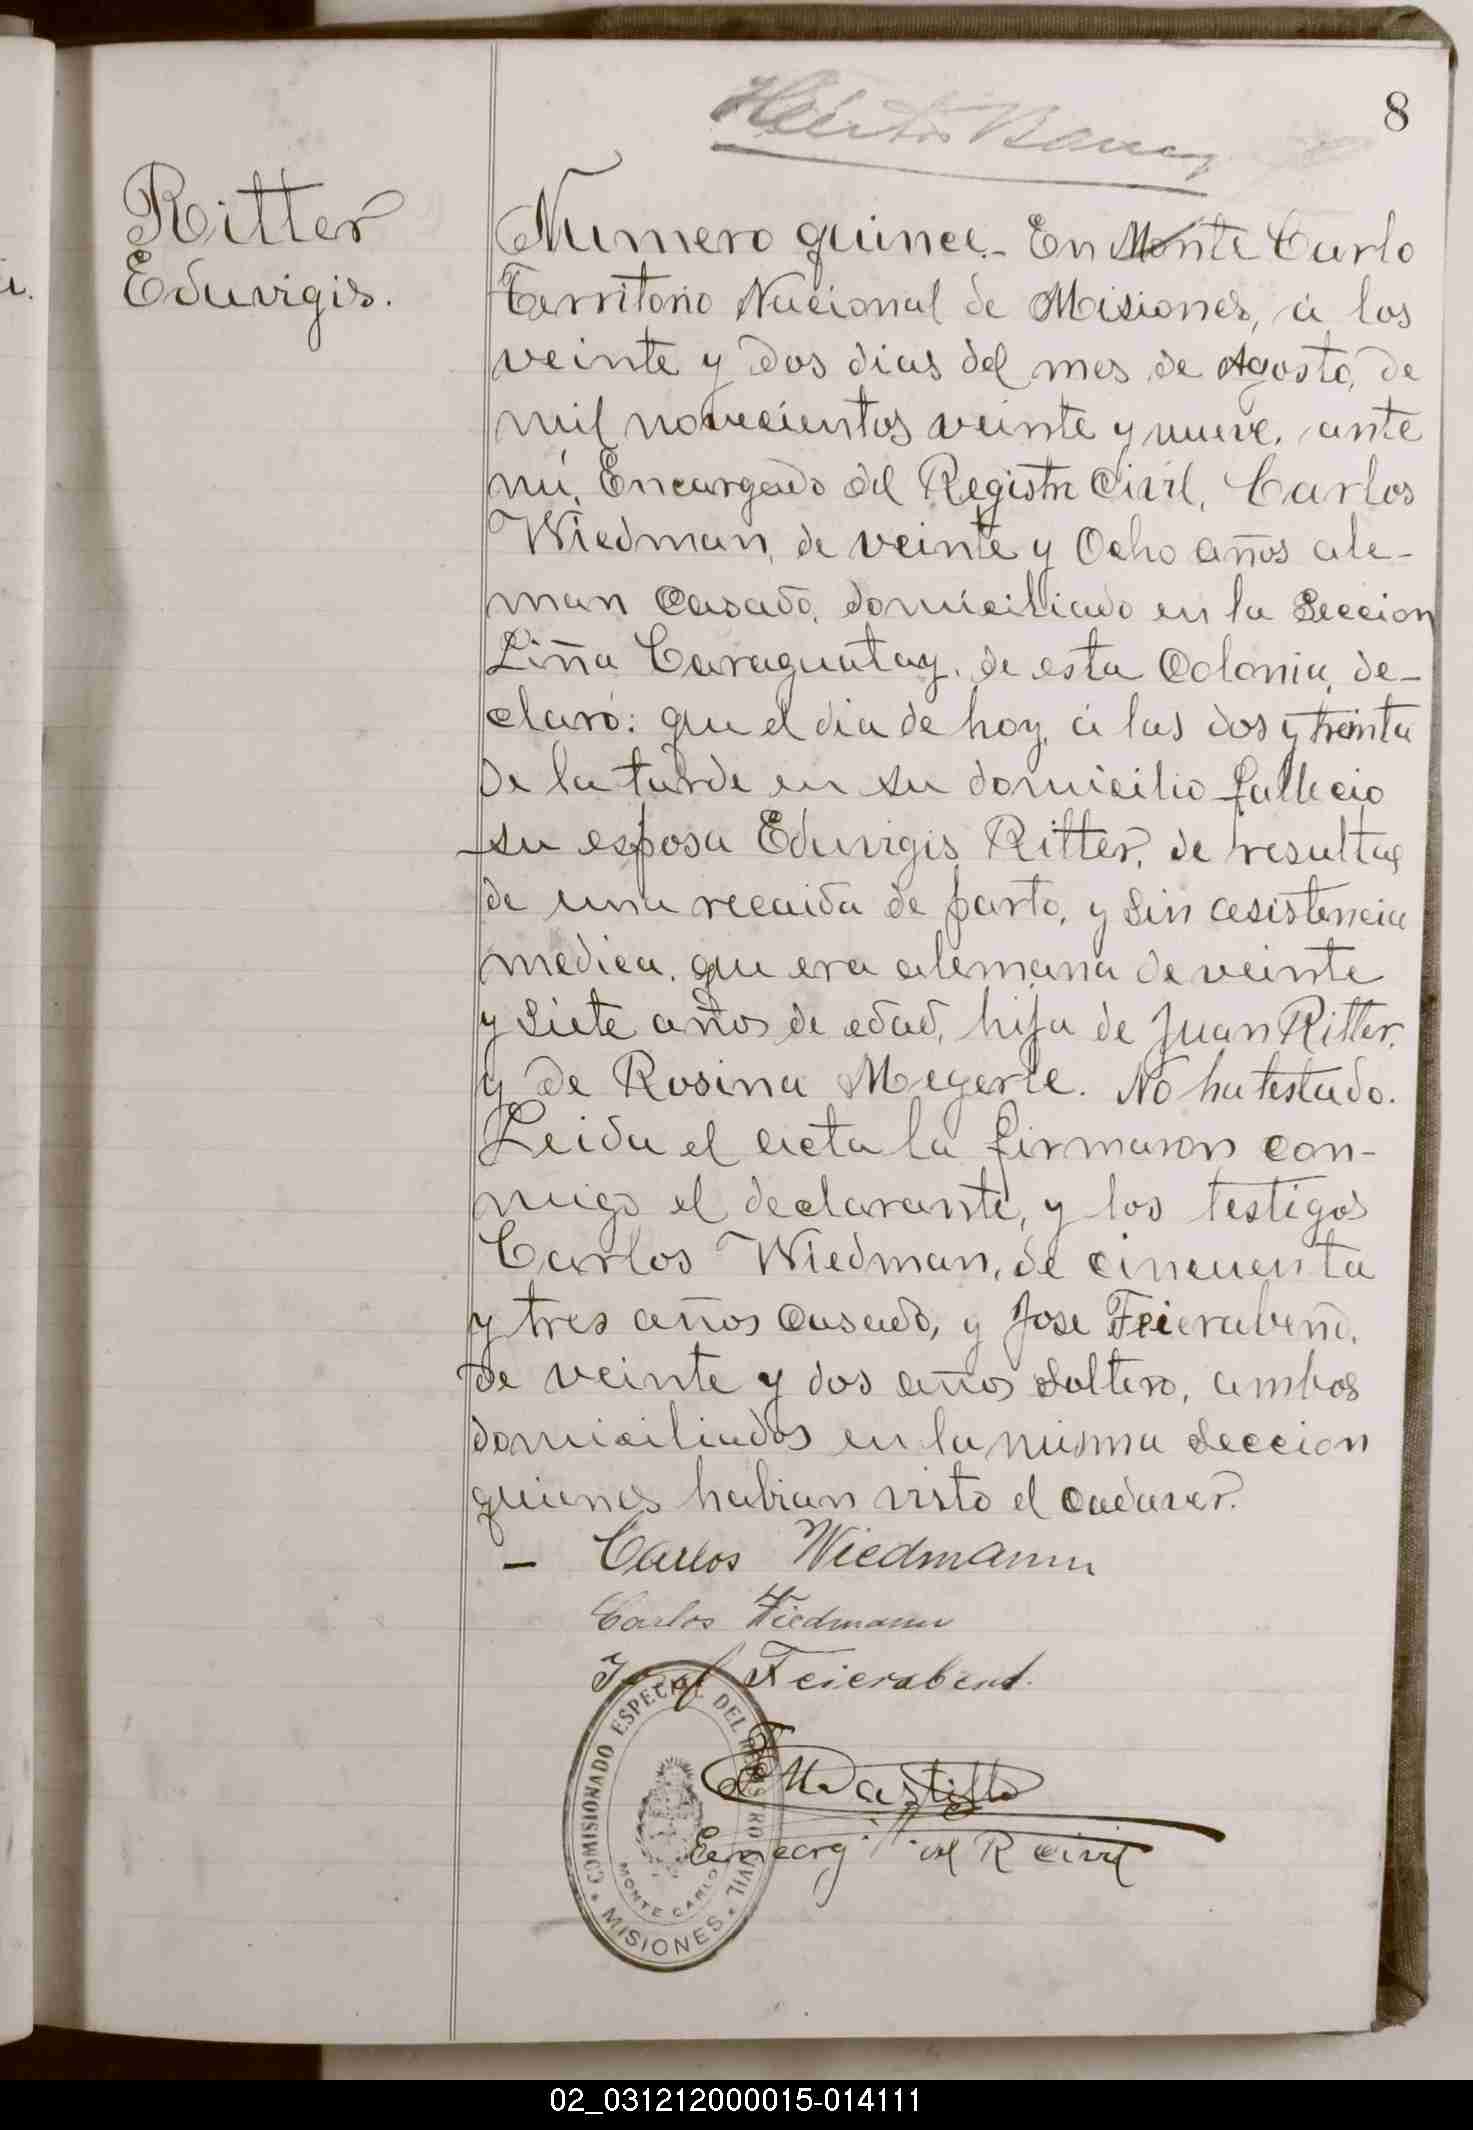 8
Ritter
Eduvigis.
Numero quince.- En Monte Carlo
Territorio Nacional de Misiones, á los
veinte y dos dias del mes de Agosto, de
mil novecientos veinte y nueve, ante
mí, Encargado del Registro Civil, Carlos
Wiedman, de veinte y Ocho años ale-
man Casado, domiciliado en la Seccion
Liña Caraguatay, de esta Colonia, de-
claró: que el dia de hoy, á las dos y treinta
de la tarde en su domicilio fallecio
su esposa Eduvigis Ritter, de resultas
de una recaida de parto, y sin asistencia
medica, que era alemana de veinte
y siete años de edad, hija de Juan Ritter,
y de Rosina Megerle. No ha testado.
Leida el acta la firmaron con-
migo el declarante, y los testigos
Carlos Wiedman, de cincuenta
y tres años Casado, y Jose Feierabend,
de veinte y dos años soltero, ambos
domiciliados en la misma seccion
quienes habian visto el cadaver.
- Carlos Wiedmann
Carlos Wiedmann
Josef Feierabend.
Castillo
Encarg. del R Civil
COMISIONADO ESPECIAL DEL REGISTRO CIVIL
MONTE CARLO
MISIONES
02_031212000015-014111